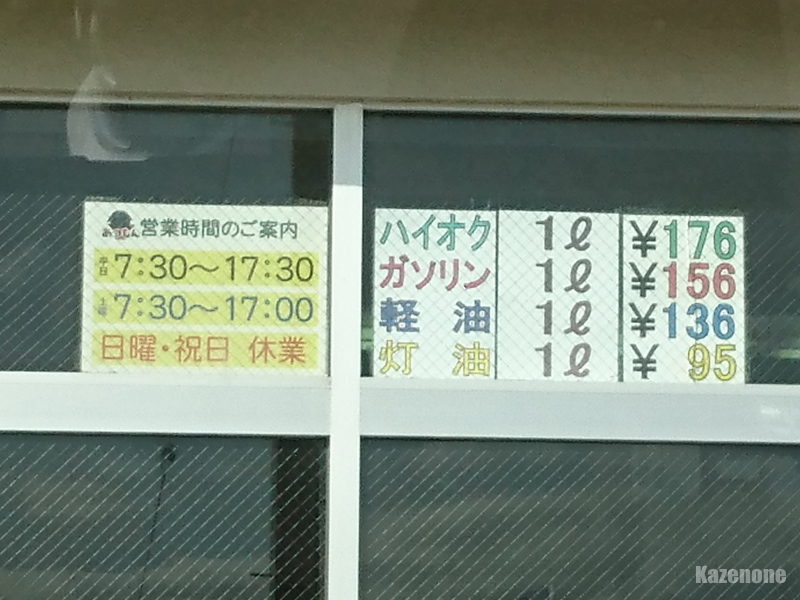 営業時間のご案内
平日 7:30〜17:30
土曜 7:30〜17:00
日曜・祝日 休業
ハイオク 1ℓ ¥176
ガソリン 1ℓ ¥156
軽油 1ℓ ¥136
灯油 1ℓ ¥95
Kazenone